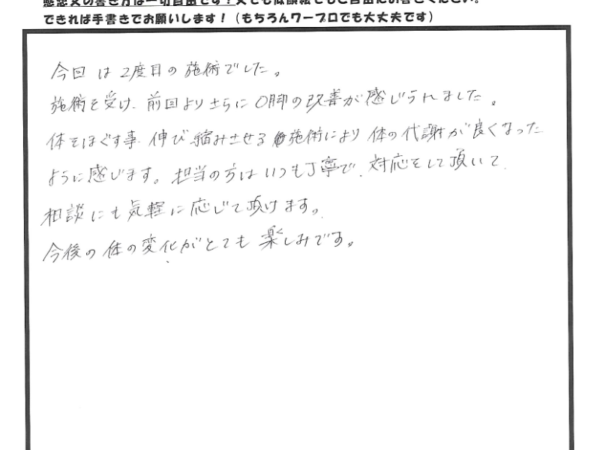 感想文の書き方は一切自由です！文でも似顔絵でもご自由にお書きください。
できれば手書きでお願いします！（もちろんワープロでも大丈夫です）
今回は2度目の施術でした。
施術を受け、前回よりさらにO脚の改善が感じられました。
体をほぐす事、伸び縮みさせる施術により体の代謝が良くなった
ように感じます。担当の方はいつも丁寧で、対応をして頂いて、
相談にも気軽に応じて頂けます。
今後の体の変化がとても楽しみです。